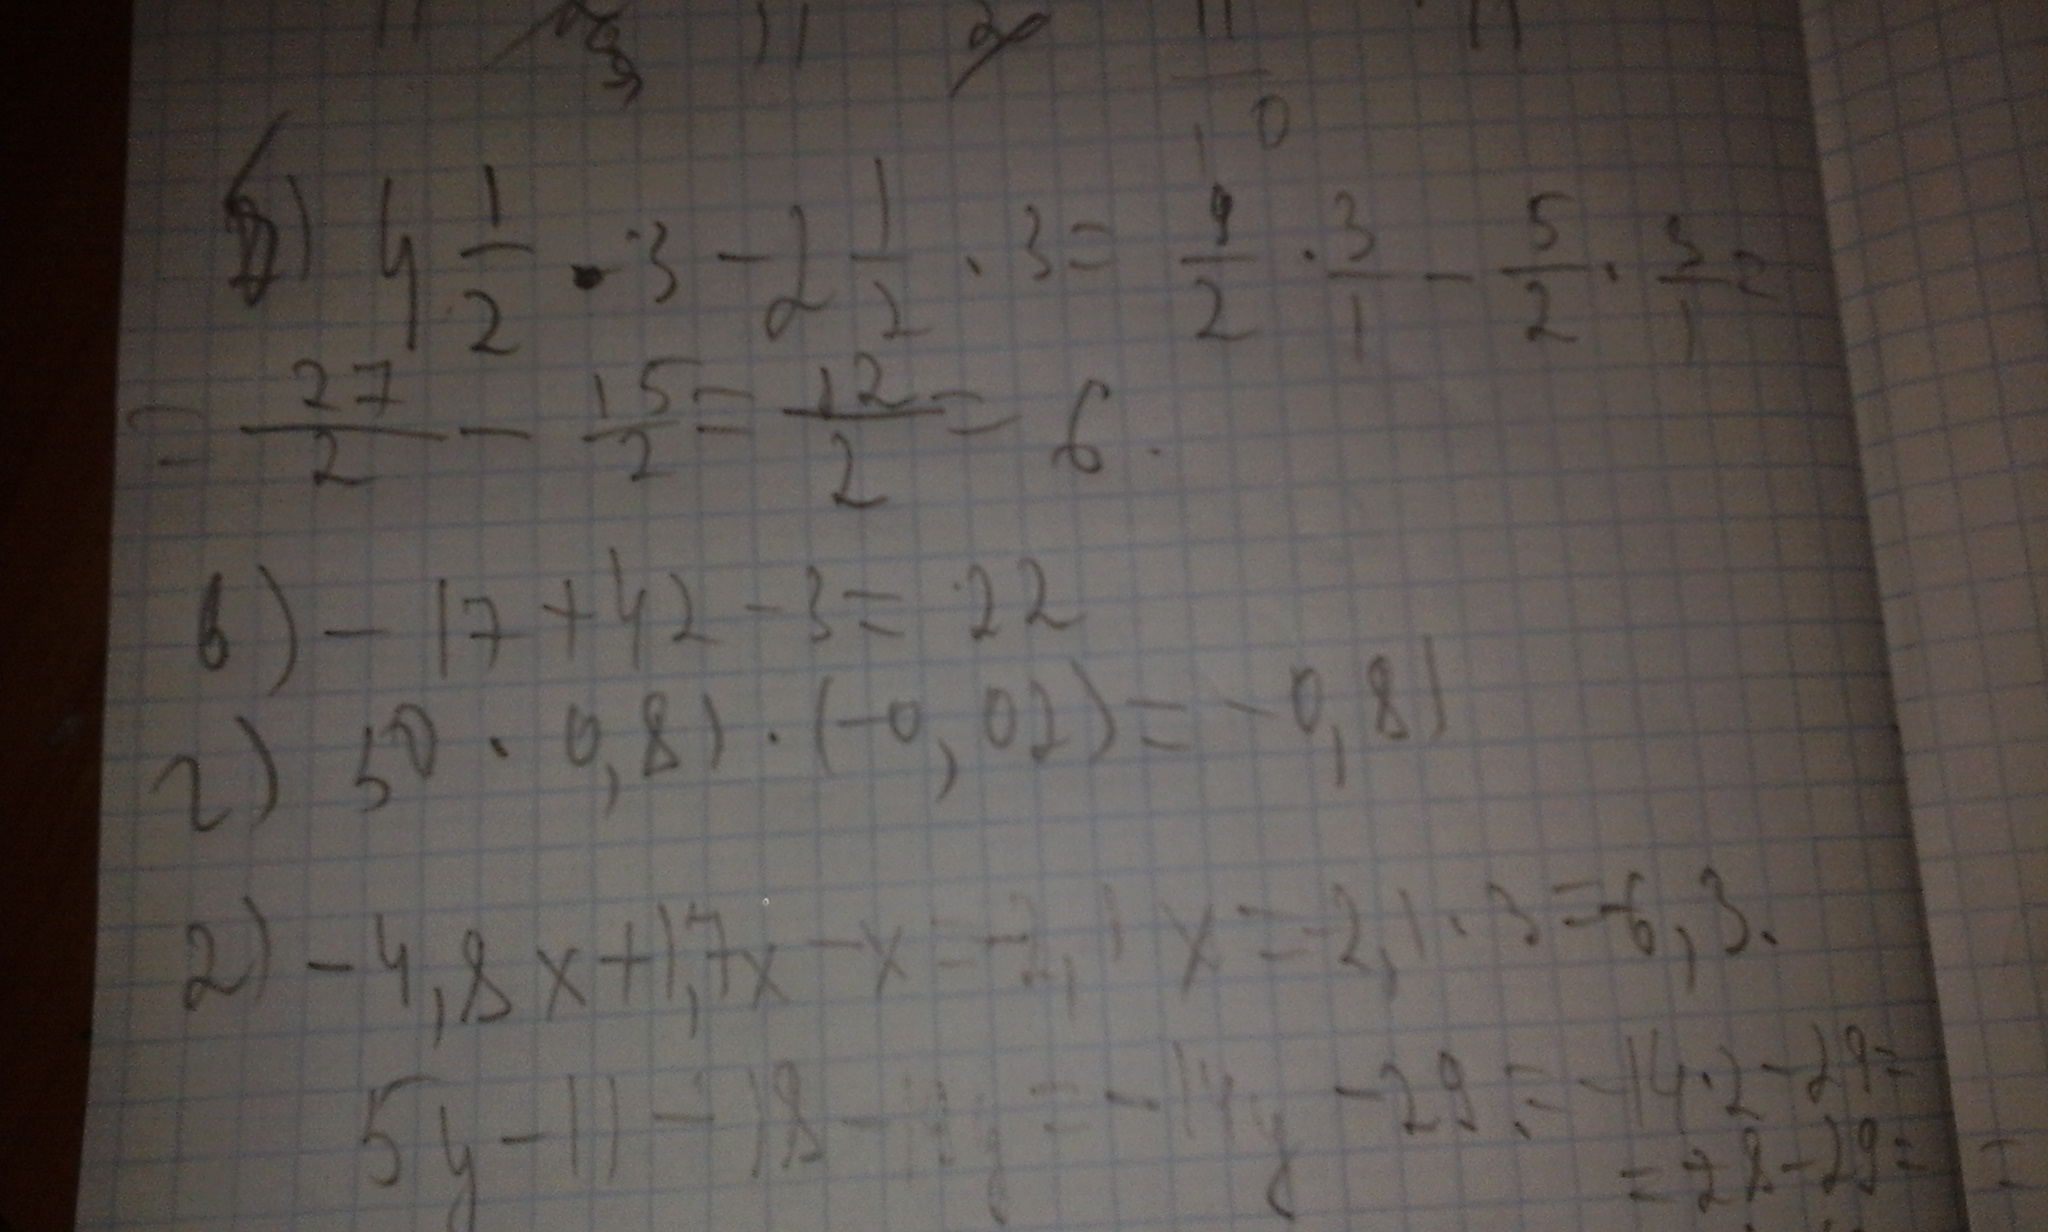 4 1/2 · 3 - 2 1/2 · 3 = 9/2 · 3/1 - 5/2 · 3/1 =
= 27/2 - 15/2 = 12/2 = 6.
в) - 17 + 42 - 3 = 22
г) 50 · 0,81 · (-0,02) = -0,81
2) -4,8x + 1,7x - x = -2,1x = -2,1 · 3 = -6,3.
5y - 11 - 18 - = -14y - 29 = -14·2-29=
= -28-29= =